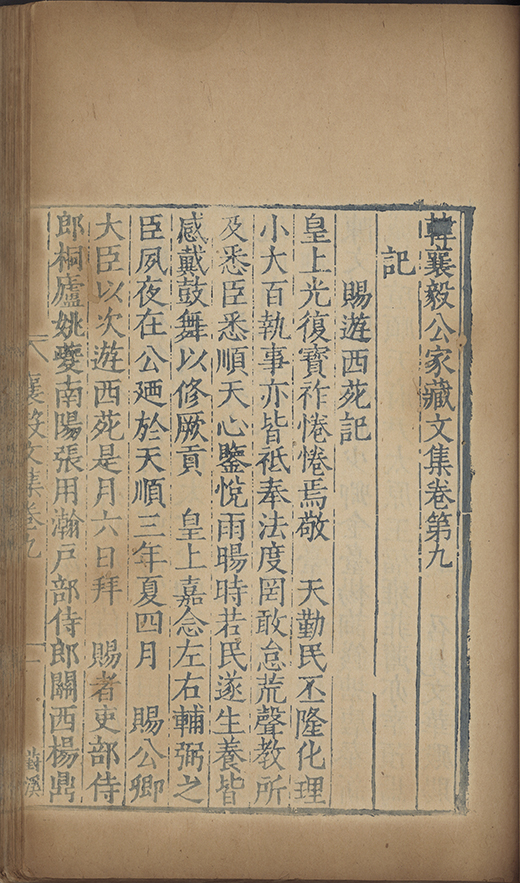 韓襄毅公家藏文集卷第九
記
賜遊西苑記
皇上光復寶祚惓惓焉敬　天勤民丕隆化理
小大百執事亦皆祗奉法度罔敢怠荒聲教所
及悉臣悉順天心鑒悅雨暘時若民遂生養皆
感戴鼓舞以修厥貢　皇上嘉念左右輔弼之
臣夙夜在公廼於天順三年夏四月　賜公卿
大臣以次遊西苑是月六日拜　賜者吏部侍
郎桐廬姚夔南陽張用瀚戶部侍郎關西楊鼎
襄毅文集卷九
一
葑溪